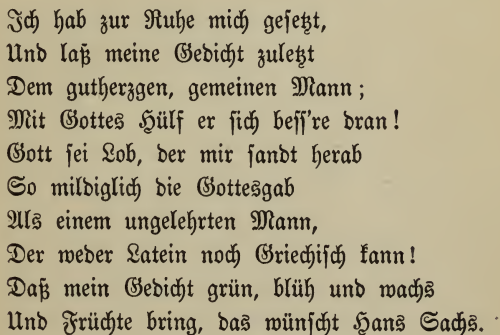 Ich hab zur Ruhe mich gesetzt,
Und laß meine Gedicht zuletzt
Dem gutherzgen, gemeinen Mann;
Mit Gottes Hülf er sich bess're dran!
Gott sei Lob, der mir sandt herab
So mildiglich die Gottesgab
Als einem ungelehrten Mann,
Der weder Latein noch Griechisch kann!
Daß mein Gedicht grün, blüh und wachs
Und Früchte bring, das wünscht Hans Sachs.